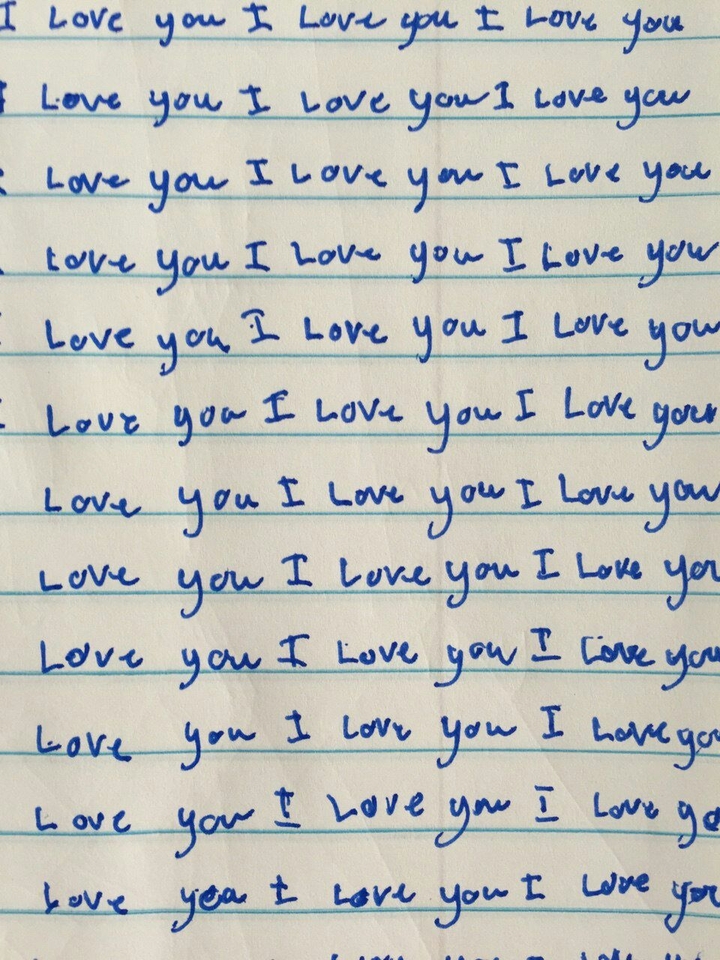 I Love you I Love you I Love you
I Love you I Love you I Love you
Love you I Love you I Love you
Love you I Love you I Love you
Love you I Love you I Love you
Love you I Love you I Love your
Love you I Love you I Love you
Love you I Love you I Love you
Love you I Love you I Love you
Love you I Love you I Love you
Love you I Love you I Love
Love yea I Love you I Love you